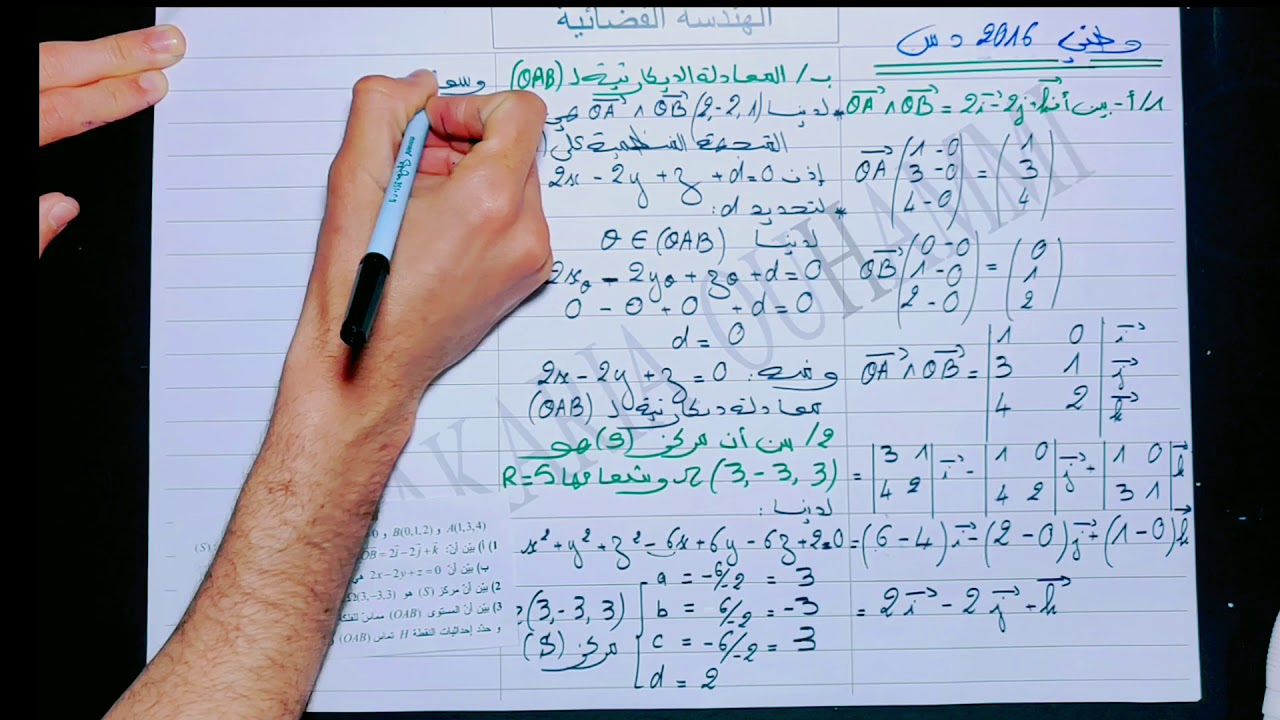 الهندسة الفضائية
وطني 2016 د س
1/أ- بين أن: OA ∧ OB = 2i - 2j + k
OA (1-0, 3-0, 4-0) = (1, 3, 4)
OB (0-0, 1-0, 2-0) = (0, 1, 2)
OA ∧ OB = |1 0 i|
|3 1 j|
|4 2 k|
= |3 1, 4 2| i - |1 0, 4 2| j + |1 0, 3 1| k
= (6-4) i - (2-0) j + (1-0) k
= 2i - 2j + k
ب/ المعادلة الديكارتية لـ (OAB)
لدينا OA ∧ OB (2,-2,1) هي
المتجهة المنظمية على
إذن 2x - 2y + z + d = 0
لتحديد d:
لدينا O ∈ (OAB)
2x₀ - 2y₀ + z₀ + d = 0
0 - 0 + 0 + d = 0
d = 0
ومنه: 2x - 2y + z = 0
معادلة ديكارتية لـ (OAB)
2/ بين أن مركز (S) هو
Ω(3,-3,3) وشعاعها R=5
لدينا:
x² + y² + z² - 6x + 6y - 6z + 2 = 0
a = -6/-2 = 3
b = 6/-2 = -3
c = -6/-2 = 3
d = 2
(3,-3,3)
مركز (S)
A(1,3,4) و B(0,1,2) و
1) أ) بيّن أنّ: OB = 2i - 2j + k
ب) بيّن أنّ 2x-2y+z=0 هي
2) بيّن أنّ مركز (S) هو Ω(3,-3,3)
3) بيّن أنّ المستوى (OAB) مماس للفلكة
و حدّد إحداثيات النقطة H تماس (OAB)